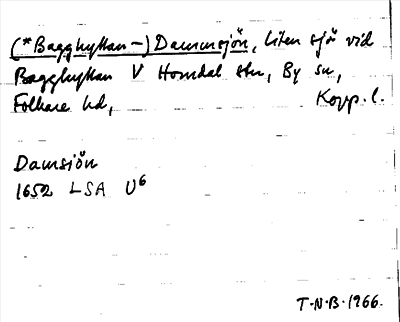 (*Bagghyttan-) Dammsjön, liten sjö vid
Bagghyttan V Horndal stn, By sn,
Folkare hd, Kopp. l.
Damsjön
1652 LSA U6
T.N.B. 1966.